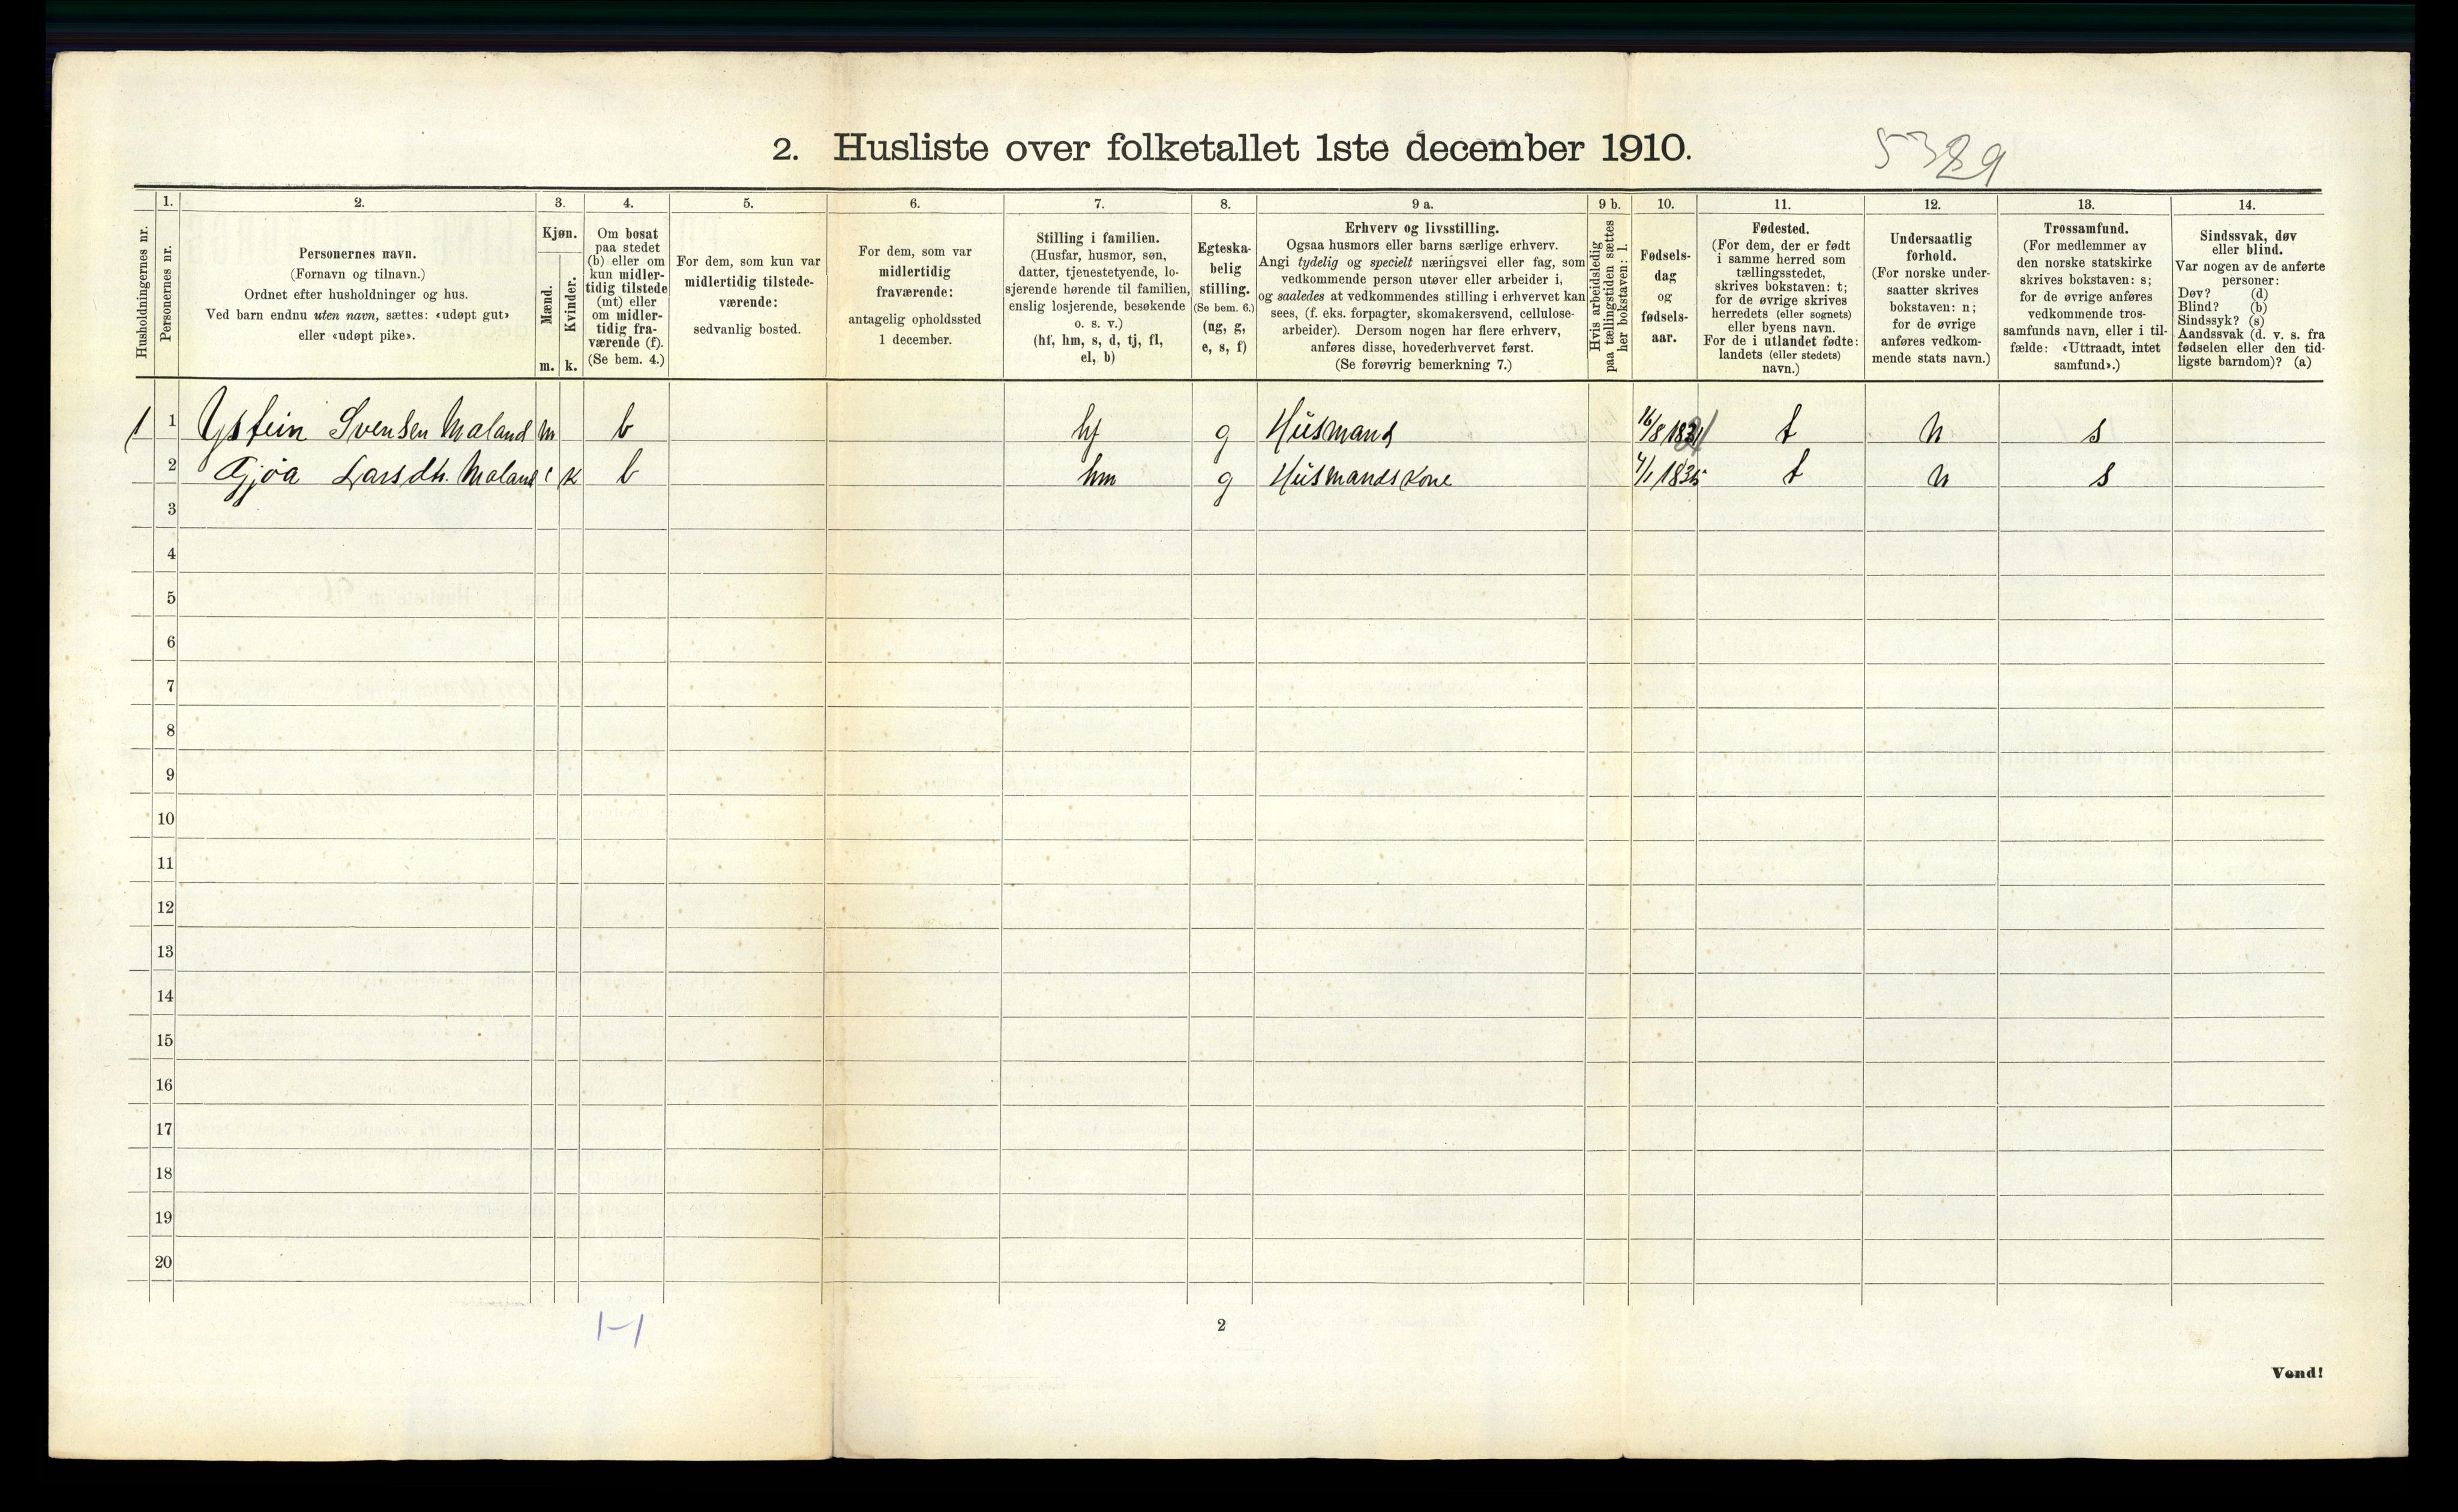 2. Husliste over folketallet 1ste december 1910.
5389
Husholdningernes nr.
1.
Personernes nr.
2.
Personernes navn.
(Fornavn og tilnavn.)
Ordnet efter husholdninger og hus.
Ved barn endnu uten navn, sættes: «udøpt gut»
eller «udøpt pike».
3.
Kjøn.
Mænd.
Kvinder.
m. k.
4.
Om bosat
paa stedet
(b) eller om
kun midler-
tidig tilstede
(mt) eller
om midler-
tidig fra-
værende (f).
(Se bem. 4.)
5.
For dem, som kun var
midlertidig tilstede-
værende:
sedvanlig bosted.
6.
For dem, som var
midlertidig
fraværende:
antagelig opholdssted
1 december.
7.
Stilling i familien.
(Husfar, husmor, søn,
datter, tjenestetyende, lo-
sjerende hørende til familien,
enslig losjerende, besøkende
o. s. v.)
(hf, hm, s, d, tj, fl,
el, b)
8.
Egteska-
belig
stilling.
(Se bem. 6.)
(ng, g,
e, s, f)
9 a.
Erhverv og livsstilling.
Ogsaa husmors eller barns særlige erhverv.
Angi tydelig og specielt næringsvei eller fag, som
vedkommende person utøver eller arbeider i,
og saaledes at vedkommendes stilling i erhvervet kan
sees, (f. eks. forpagter, skomakersvend, cellulose-
arbeider). Dersom nogen har flere erhverv,
anføres disse, hovederhvervet først.
(Se forøvrig bemerkning 7.)
9 b.
Hvis arbeidsledig
paa tællingstiden sættes
her bokstaven: l.
10.
Fødsels-
dag
og
fødsels-
aar.
11.
Fødested.
(For dem, der er født
i samme herred som
tællingsstedet,
skrives bokstaven: t;
for de øvrige skrives
herredets (eller sognets)
eller byens navn.
For de i utlandet fødte:
landets (eller stedets)
navn.)
12.
Undersaatlig
forhold.
(For norske under-
saatter skrives
bokstaven: n;
for de øvrige
anføres vedkom-
mende stats navn.)
13.
Trossamfund.
(For medlemmer av
den norske statskirke
skrives bokstaven: s;
for de øvrige anføres
vedkommende tros-
samfunds navn, eller i til-
fælde: «Uttraadt, intet
samfund».)
14.
Sindssvak, døv
eller blind.
Var nogen av de anførte
personer:
Døv? (d)
Blind? (b)
Sindssyk? (s)
Aandssvak (d. v. s. fra
fødselen eller den tid-
ligste barndom)? (a)
1 1 Ystein Svensen Maland m b hf g Husmand 16/8 1831 t n s
2 Gjøa Larsdtr. Maland k b hm g Husmandskone 4/1 1835 t n s
3
4
5
6
7
8
9
10
11
12
13
14
15
16
17
18
19
20
1-1
2
Vend!